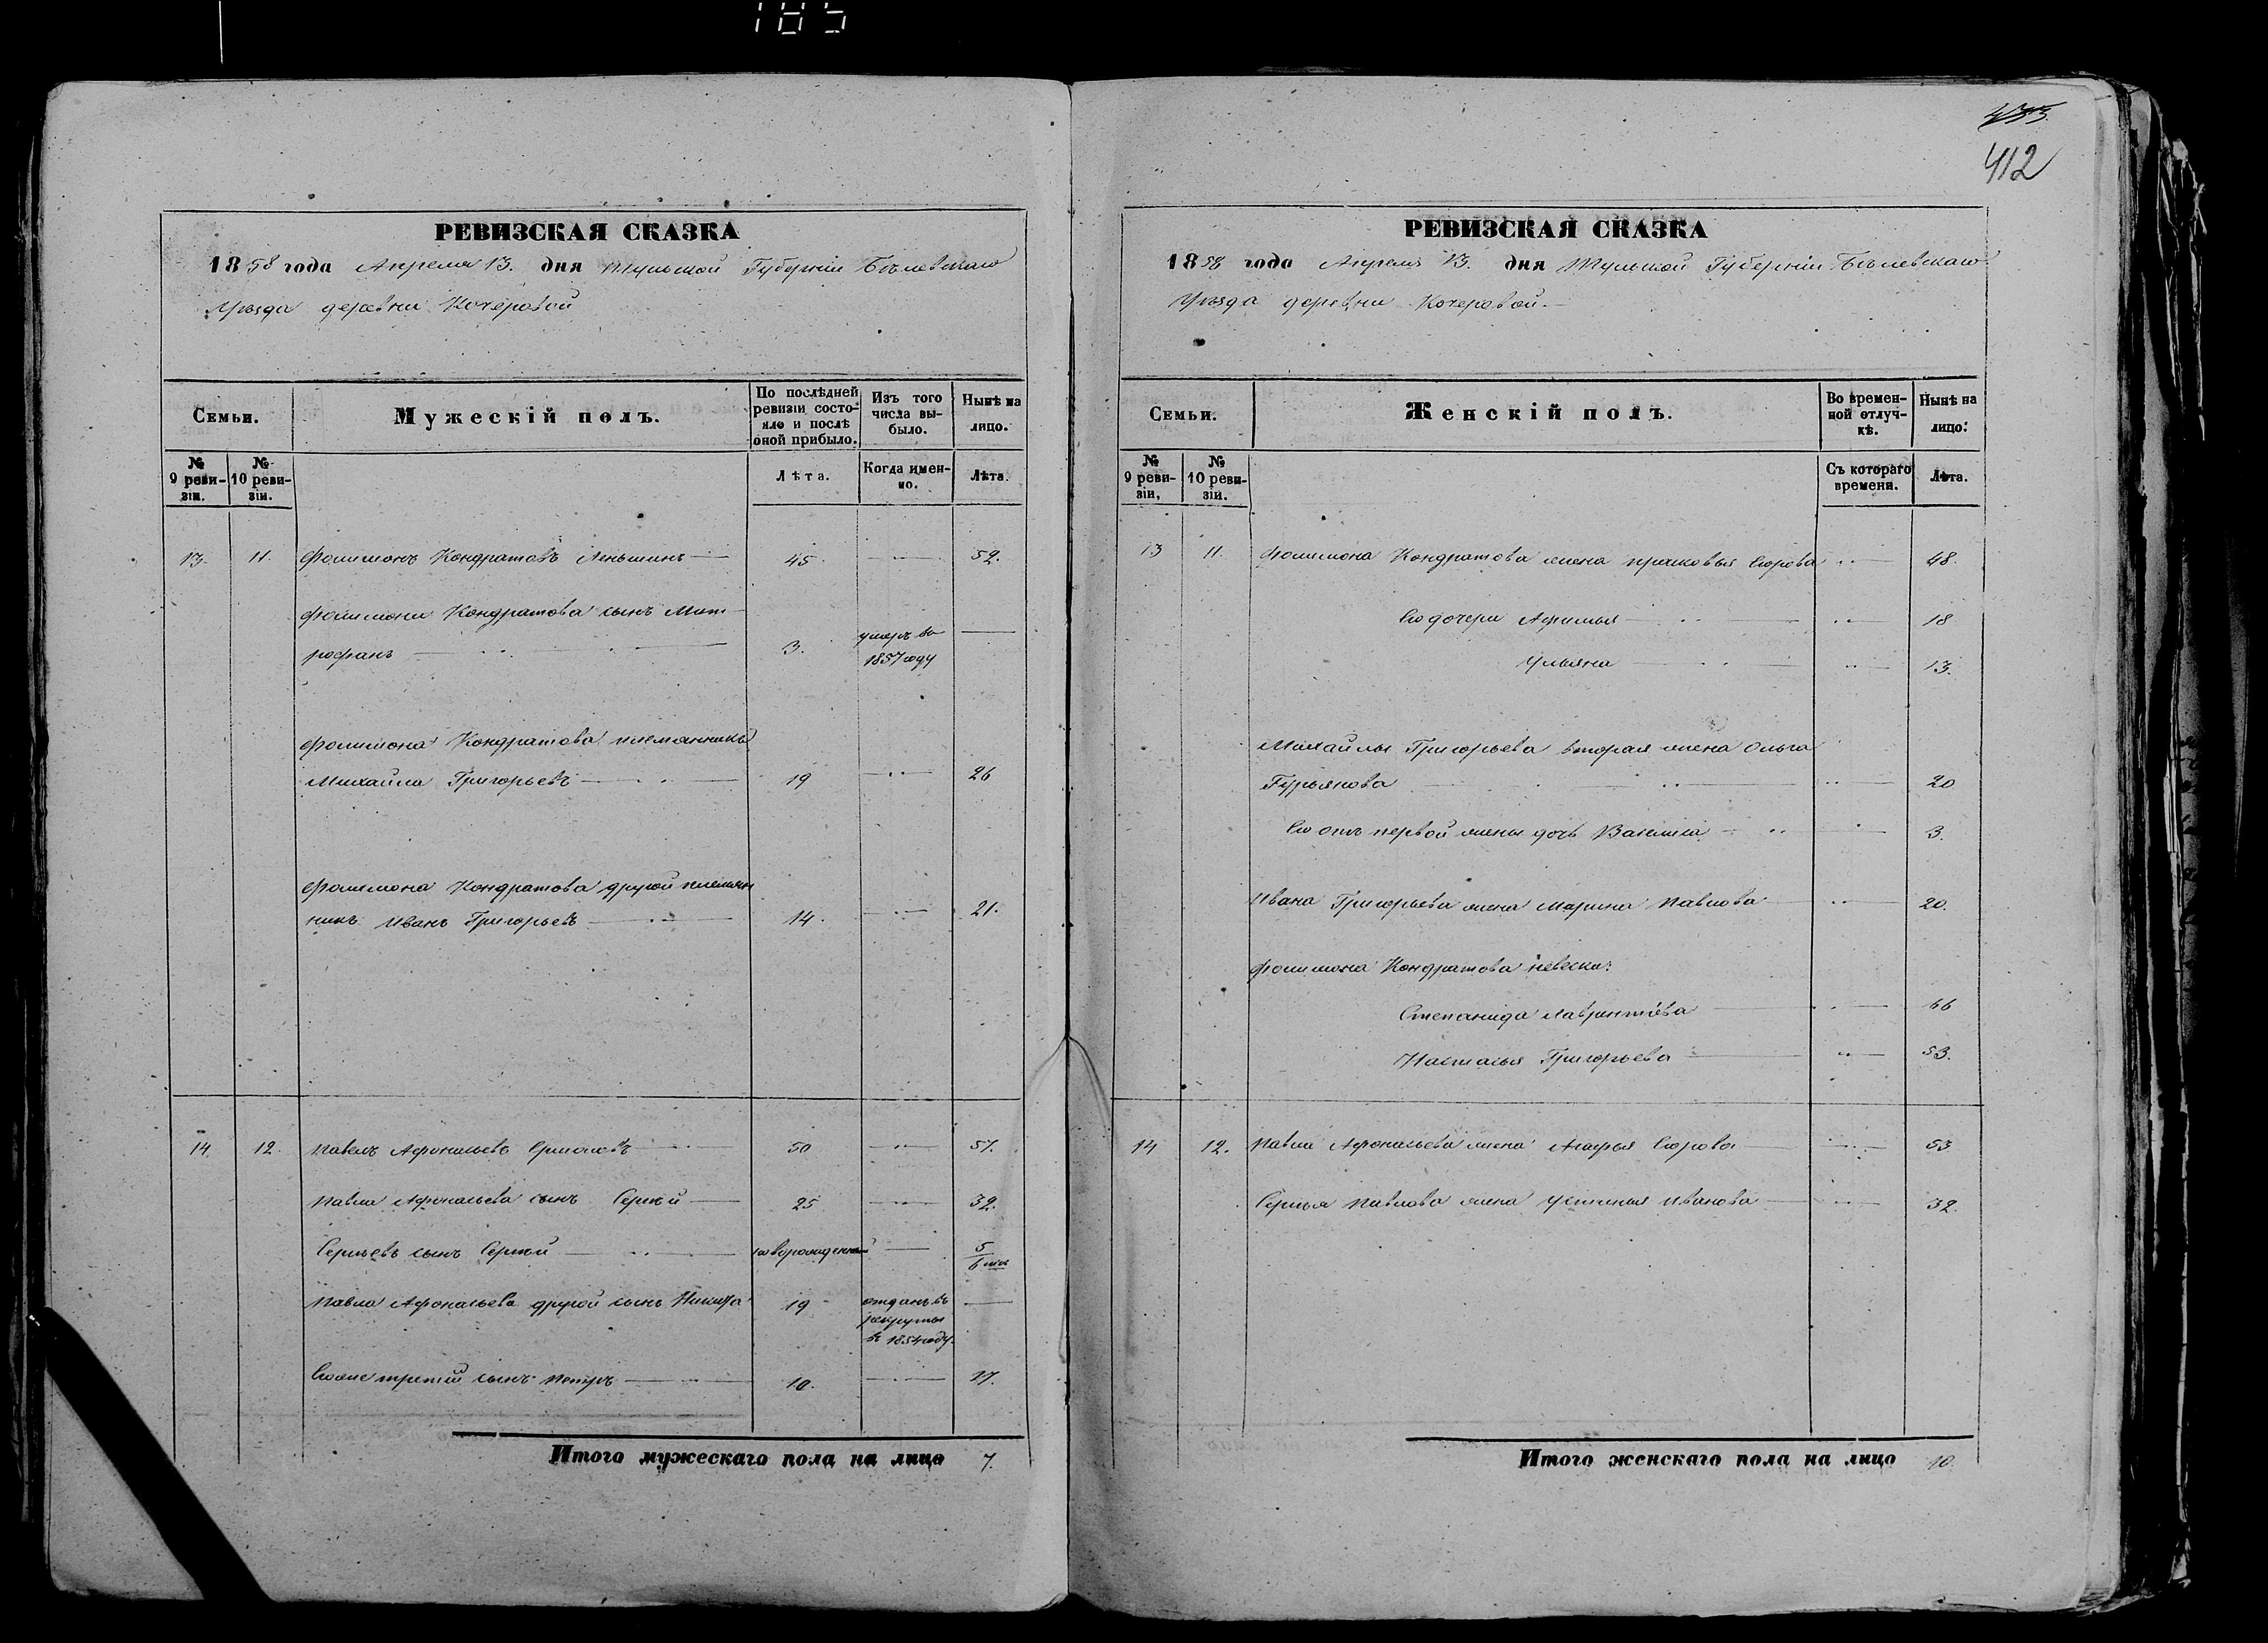 185
РЕВИЗСКАЯ СКАЗКА
1858 года Апреля 13. дня Тульской Губерніи Бѣлевскаго
Уѣзда деревни Кочеровой
Семьи.
Мужескій полъ.
По послѣдней ревизіи состояло и послѣ оной прибыло.
Изъ того числа выбыло.
Нынѣ на лицо.
№ 9 ревизіи.
№ 10 ревизіи.
Лѣта.
Когда именно.
Лѣта.
13. 11. Филимонъ Кондратовъ 45 52.
Филимона Кондратова сынъ Мит-
рофанъ 3. умеръ въ
1857 году
Филимона Кондратова племянникъ
Михайла Григорьевъ 19 26
Филимона Кондратова другой племян
никъ Иванъ Григорьевъ 14. 21.
14. 12. Павелъ Афонасьевъ 50 57.
Павла Афонасьева сынъ Сергѣй 25 32.
Сергѣевъ сынъ Сергѣй новорожденный 5
6 мѣс
Павла Афонасьева другой сынъ Никита 19 отданъ въ
рекруты
въ 1854 году.
Его же третій сынъ Петръ 10. 17.
Итого мужескаго пола на лицо 7.
412
РЕВИЗСКАЯ СКАЗКА
1858 года Апреля 13. дня Тульской Губерніи Бѣлевскаго
Уѣзда деревни Кочеровой.
Семьи.
Женскій полъ.
Во временной отлучкѣ.
Нынѣ на лицо.
№ 9 ревизіи,
№ 10 ревизіи.
Съ котораго времени.
Лѣта.
13 11. Филимона Кондратова жена Прасковья Егорова 48.
Его дочери Афимья 18
Ульяна 13.
Михайлы Григорьева вторая жена Ольга
Гурьянова 20
Его отъ первой жены дочь Василиса 3.
Ивана Григорьева жена Марина Павлова 20.
Филимона Кондратова невестки:
Степанида Лаврентьева 66
Настасья Григорьева 53.
14 12. Павла Афонасьева жена Агафья Егорова 53
Сергѣя Павлова жена Устинья Иванова 32.
Итого женскаго пола на лицо 10.